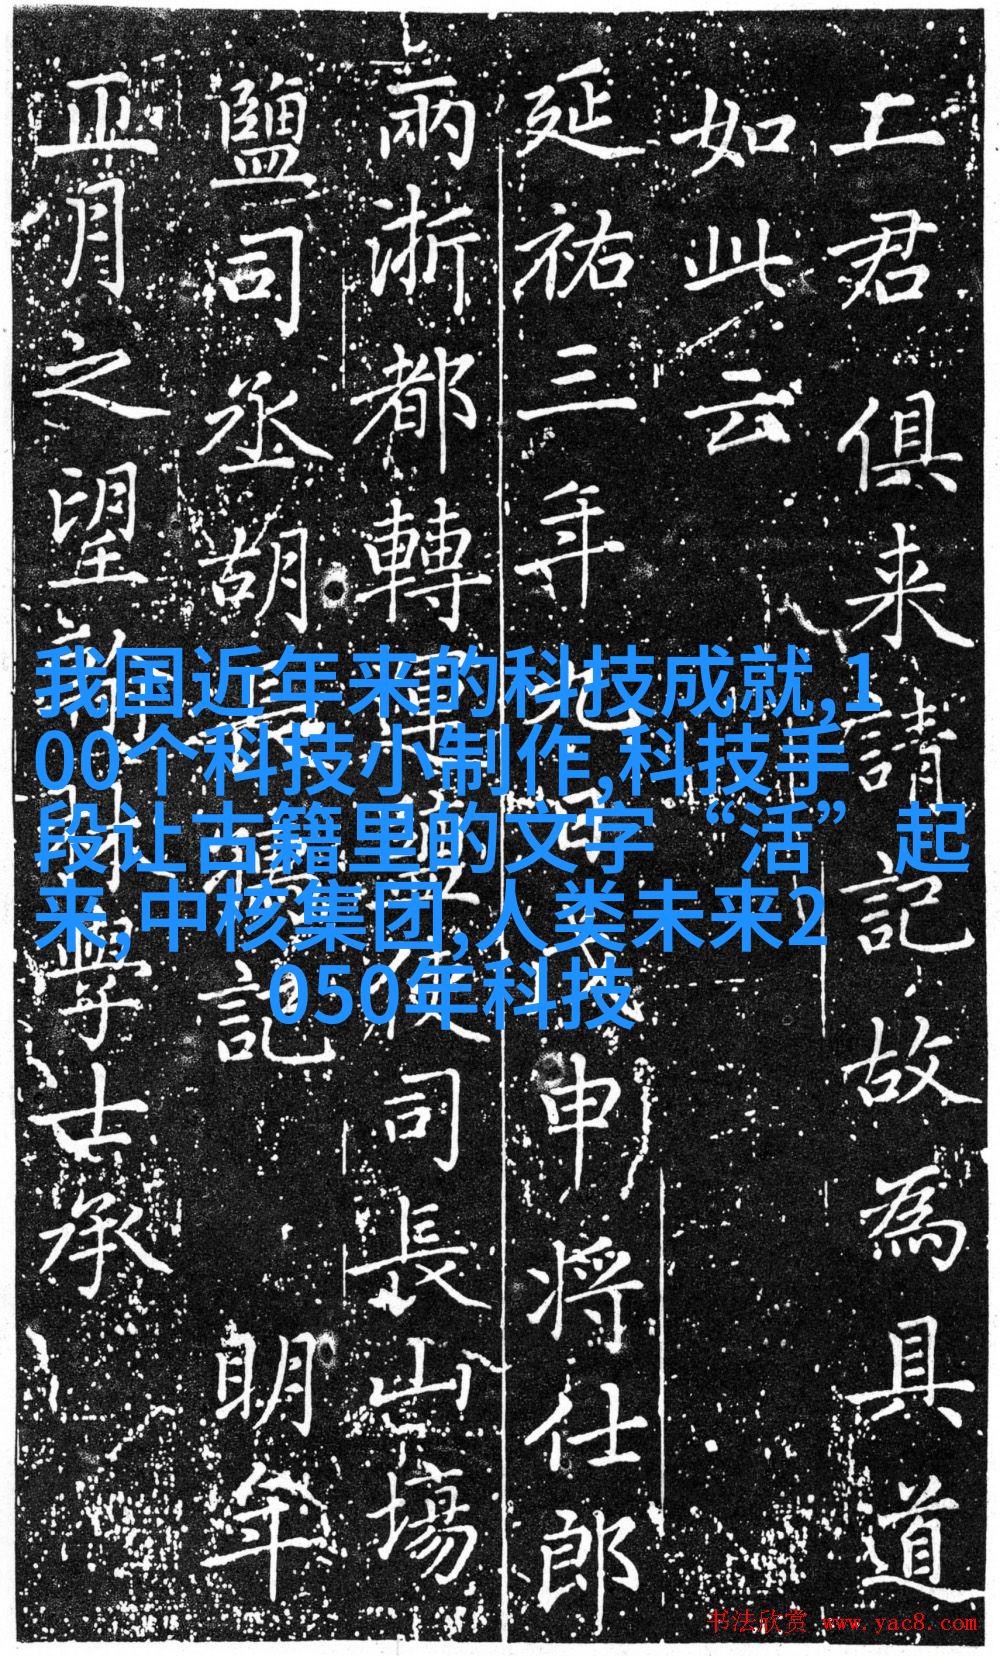 上君俱来請記故為具道
如此云
延祐三年九月申将仕郎
兩浙都轉運鹽使司長山場
鹽司丞胡長孺記 明年
正月之望翰林學士承
我国近年来的科技成就,1
00个科技小制作,科技手
段让古籍里的文字“活”起
来,中核集团,人类未来2
050年科技
书法欣赏 www.yac8.com